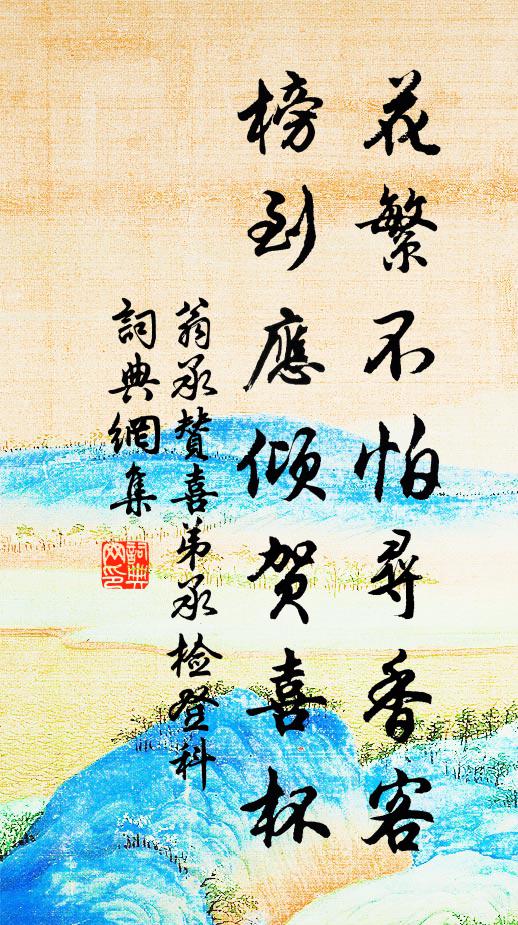 花繁不怕尋香客
榜到應傾賀喜杯
翁承贊喜弟承检登科
詞典網集
詞典网印